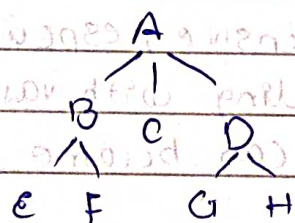 A
B C D
E F G H